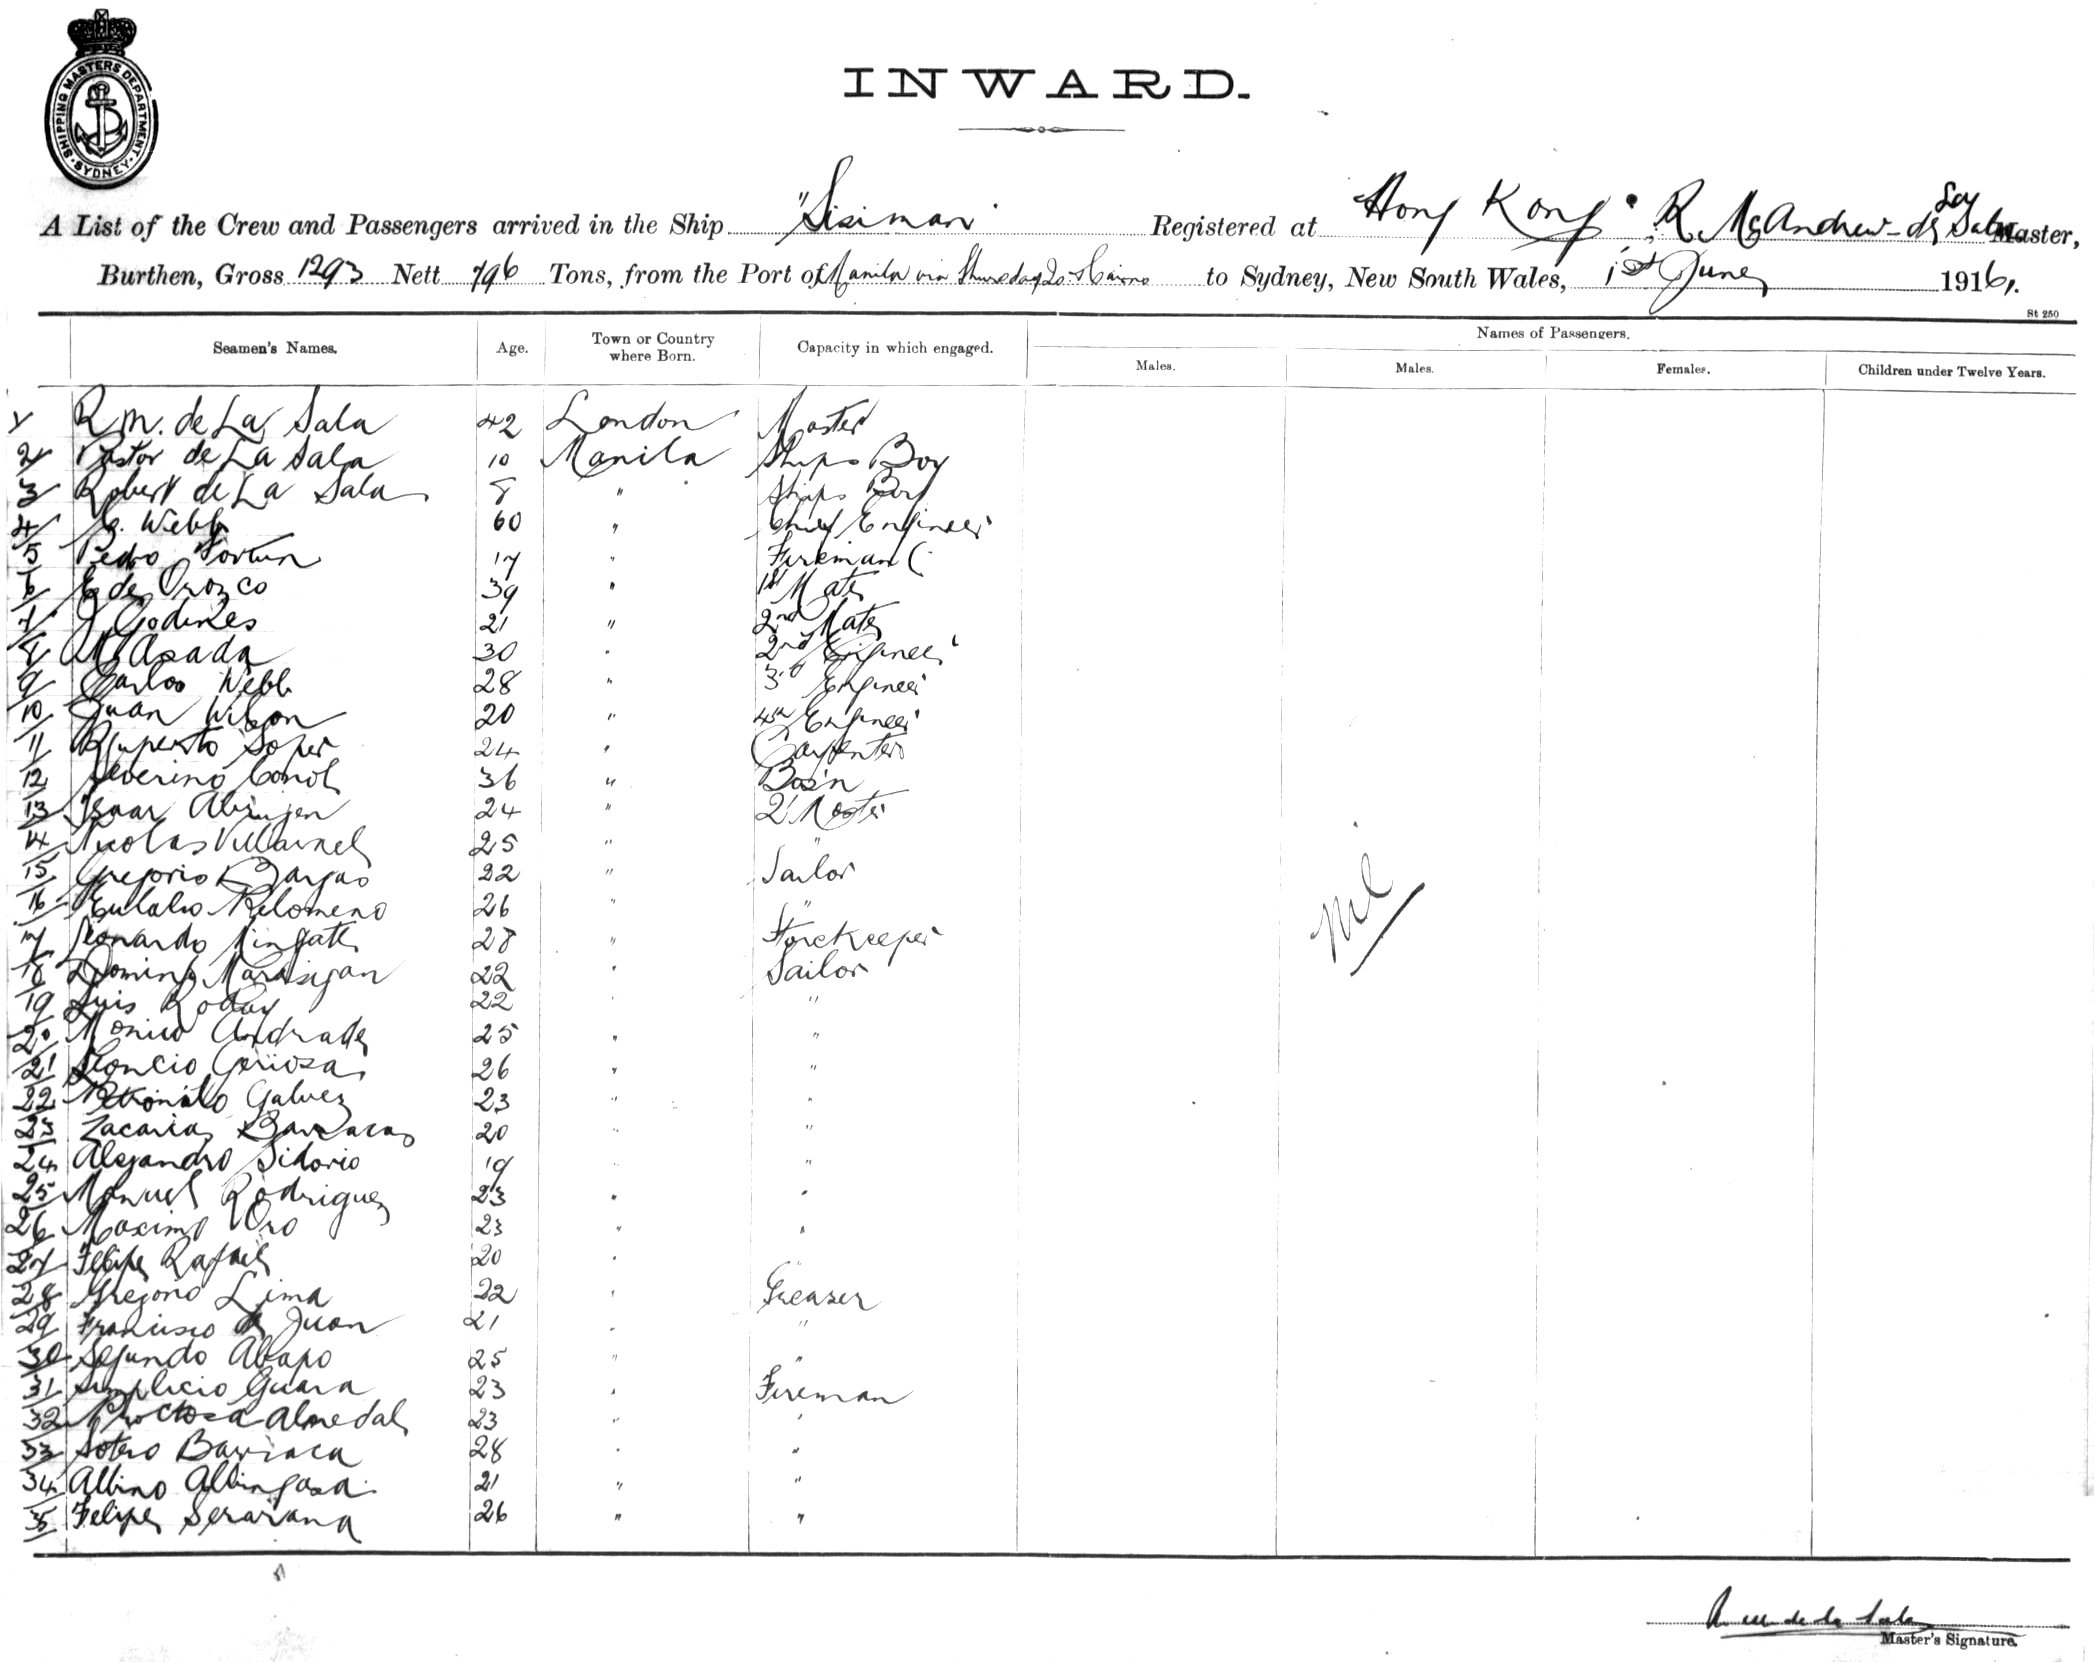 SHIPPING MASTERS DEPARTMENT. SYDNEY.
INWARD.
A List of the Crew and Passengers arrived in the Ship "Sisiman" Registered at Hong Kong, R. McAndrew de La Sala Master,
Burthen, Gross 1293 Nett 796 Tons, from the Port of Manila via Thursday Is & Cairns to Sydney, New South Wales, 1st June 1916.
St 250
Seamen's Names. Age. Town or Country where Born. Capacity in which engaged. Names of Passengers.
Males. Males. Females. Children under Twelve Years.
1 R. M. de La Sala 42 London Master
2 Pastor de La Sala 10 Manila Ships Boy
3 Robert de La Sala 8 " Ships Boy
4 Webb 60 " Chief Engineer
5 Pedro Fortun 17 " Fireman
6 E de Orozco 39 " 1st Mate
7 J Godines 21 " 2nd Mate
8 M Asada 30 " 2nd Engineer
9 Carlos Webb 28 " 3rd Engineer
10 Juan Wilson 20 " 4th Engineer
11 Ruperto Soper 24 " Carpenter
12 Severino Conol 36 " Bos'n
13 24 " 2 Master
14 Nicolas Villarnel 25 " "
15 Gregorio Bargas 22 " Sailor
16 Eulalio Filomeno 26 " "
17 Leonardo 28 " Storekeeper
18 Domingo Marasigan 22 " Sailor
19 Luis Roday 22 " "
20 Monico Andrade 25 " "
21 Leoncio 26 " "
22 Petronilo Galvez 23 " "
23 Zacarias Barracas 20 " "
24 Alejandro Sidorio 19 " "
25 Manuel Rodriguez 23 " "
26 Maximo Oro 23 " "
27 Felipe Rafael 20 " "
28 Gregorio Lima 22 " Greaser
29 Francisco de Juan 21 " "
30 Segundo Abapo 25 " "
31 Simplicio Guara 23 " Fireman
32 Almedal 23 " "
33 Sotero Barriaca 28 " "
34 Albino Albingasa 21 " "
35 Felipe Serarana 26 " "
Nil
R M de la Sala
Master's Signature.